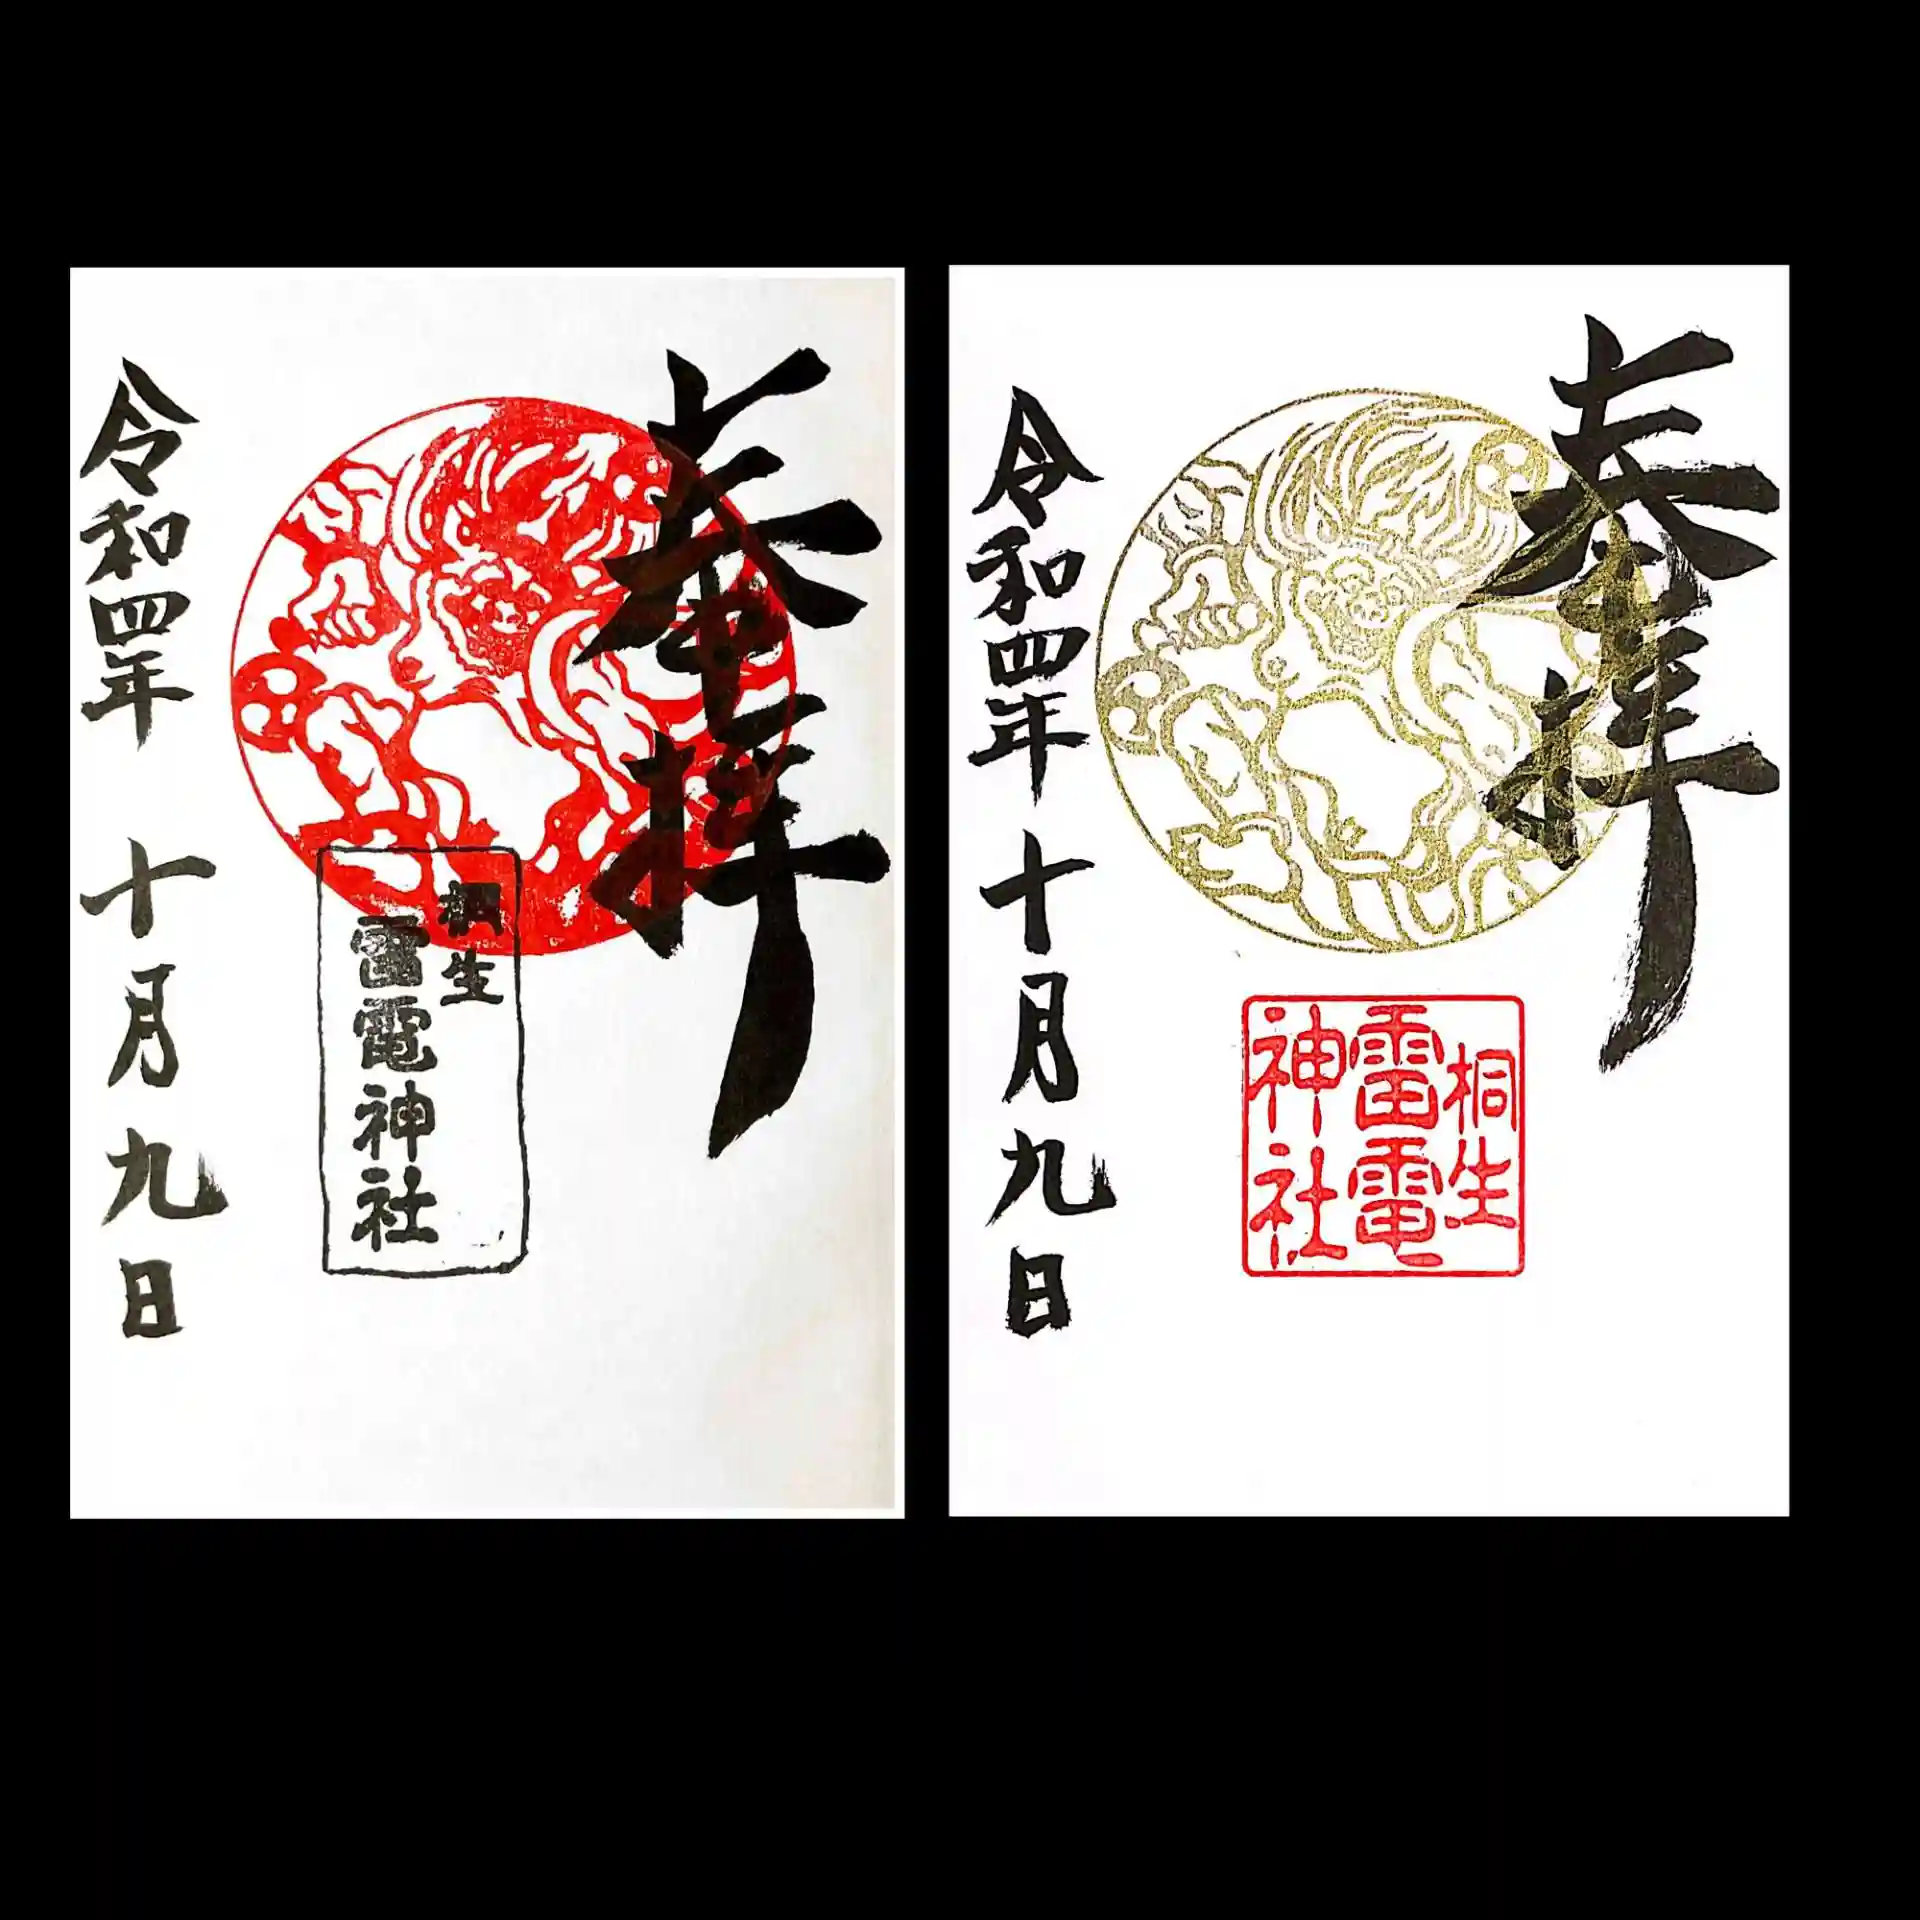 奉拝
桐生
雷電神社
令和四年 十月九日
奉拝
桐生
雷電
神社
令和四年十月九日